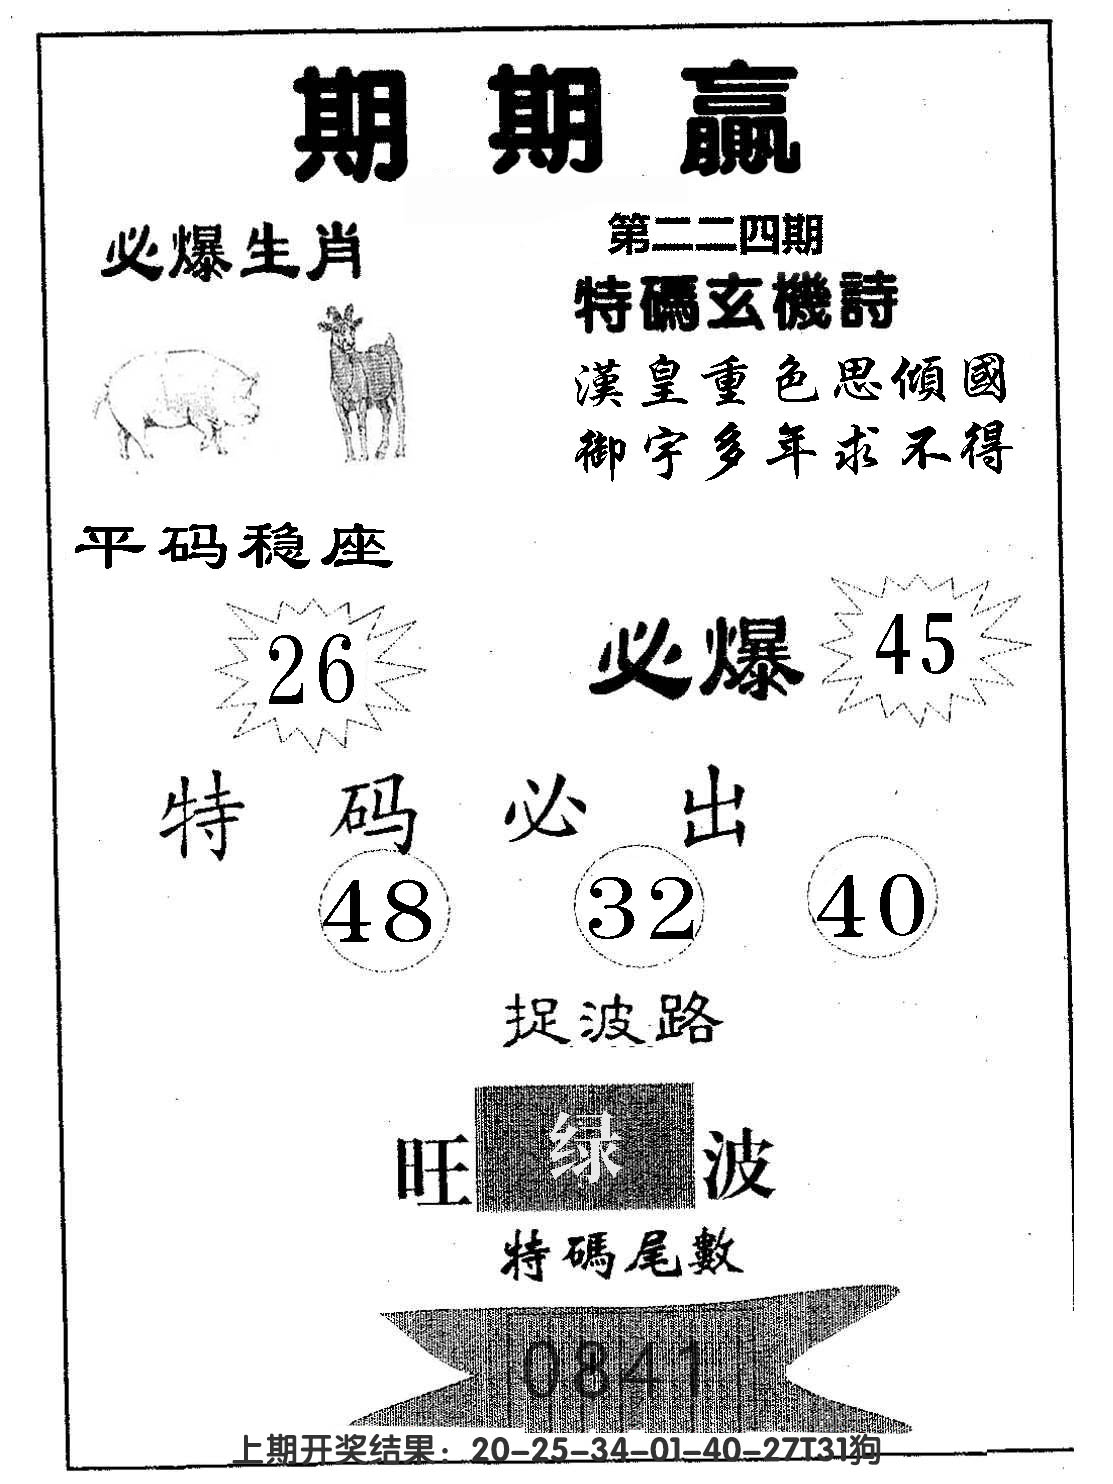 期期赢
必爆生肖
第二二四期
特碼玄機詩
漢皇重色思傾國
御宇多年求不得
平码稳座
26
必爆 45
特码必出
48 32 40
捉波路
旺 绿 波
特碼尾數
0841
上期开奖结果：20-25-34-01-40-27T31狗